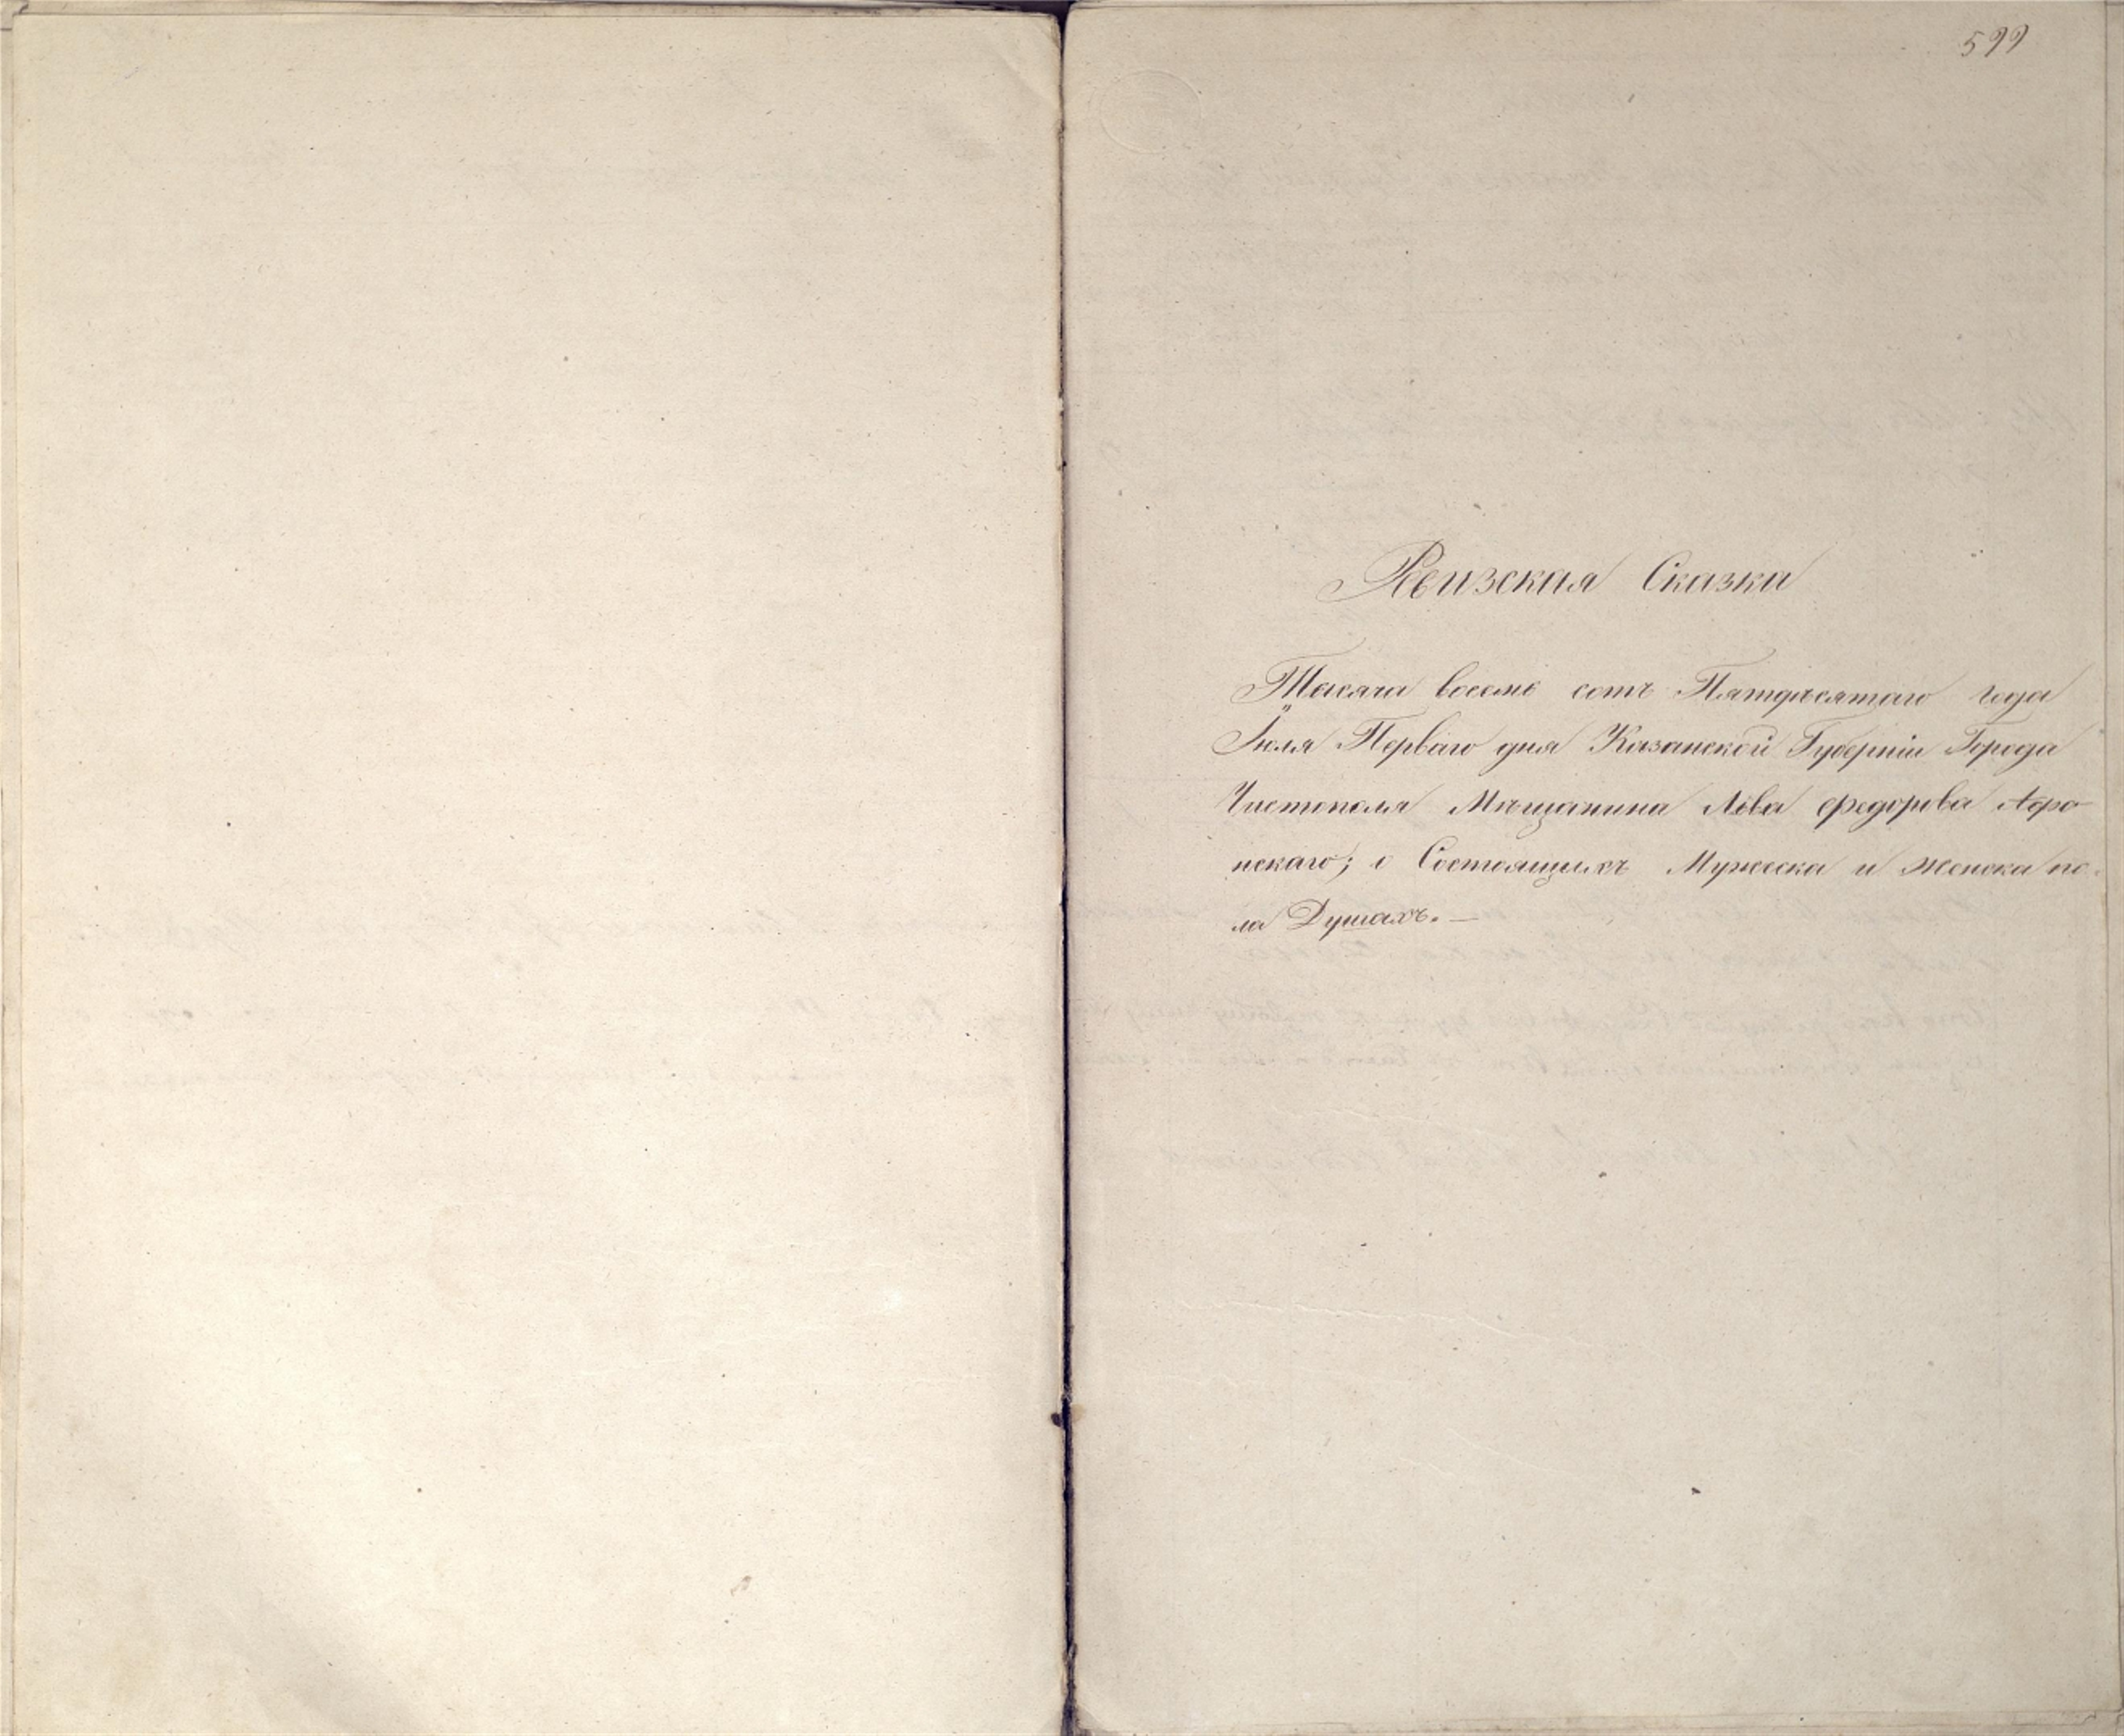 599
Ревизская Сказка
Тысяча восемь сотъ Пятдесятаго года
Іюля Перваго дня Казанской Губерніи Города
Чистополя Мѣщанина Льва Федорова
нскаго; о Состоящихъ Мужеска и женска по-
ла Душахъ. —